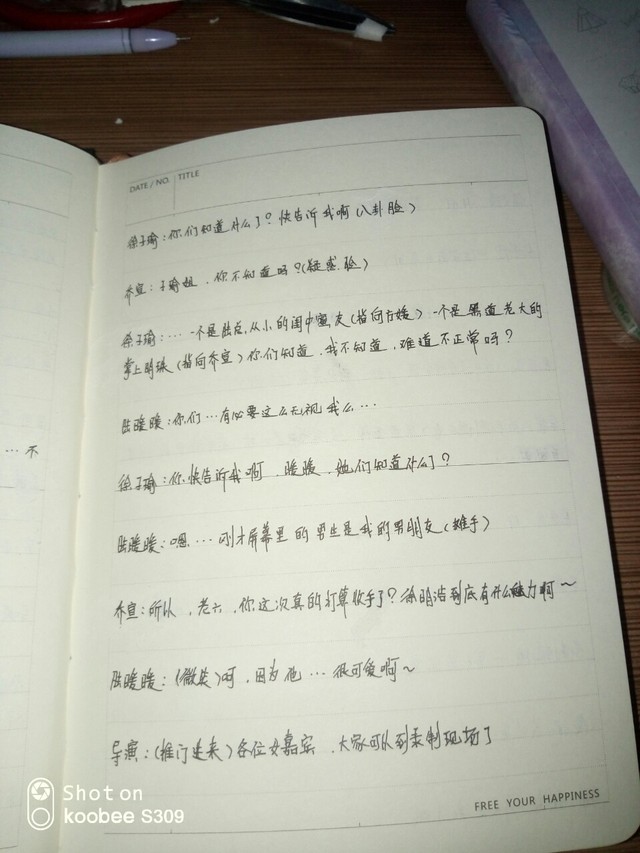 DATE/NO. TITLE
徐子瑜：你们知道什么了？快告诉我啊（八卦脸）
乔宣：子瑜姐，你不知道吗？（疑惑脸）
徐子瑜：…一个是陆总从小的闺中蜜友（指向方媛）一个是黑道老大的
掌上明珠（指向乔宣）你们知道，我不知道，难道不正常吗？
陆暖暖：你们…有必要这么无视我么…
徐子瑜：你快告诉我啊 暖暖，她们知道什么了？
陆暖暖：嗯…刚才屏幕里的男生是我的男朋友（摊手）
乔宣：所以，老六，你这次真的打算收手了？徐明浩到底有什么魅力啊～
陆暖暖：（微笑）呵，因为他…很可爱啊～
导演：（推门进来）各位女嘉宾，大家可以到录制现场了
…不
FREE YOUR HAPPINESS
Shot on
koobee S309